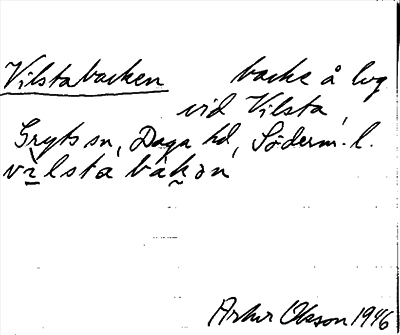 Vilstabacken backe å lvg
vid Vilsta,
Gryts sn, Daga hd, Söderm. l.
vìlsta bákən
Artur Olsson 1946